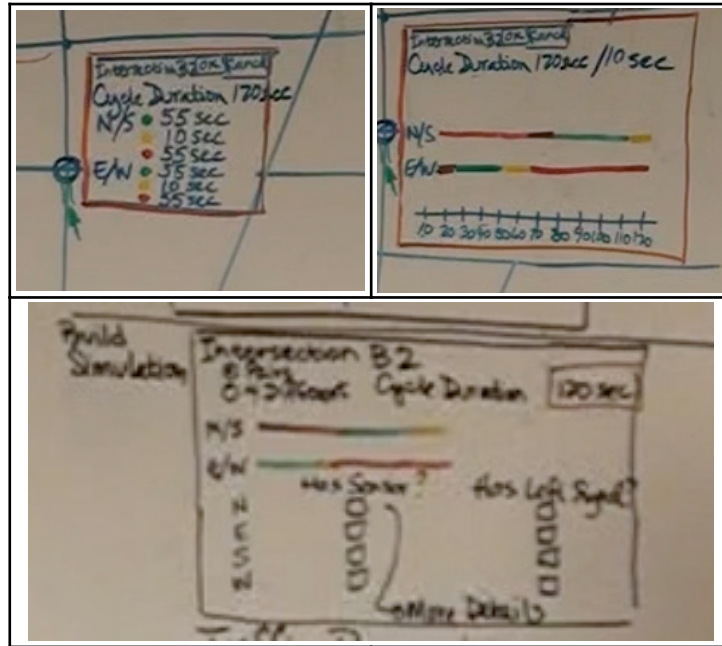 Intersection B2 OK Cancel
Cycle Duration 120sec
N/S 55 sec
10 sec
55 sec
E/W 55 sec
10 sec
55 sec
Intersection B2 OK Cancel
Cycle Duration 120sec /10 sec
N/S
E/W
10 20 30 40 50 60 70 80 90 100 110 120
Build
Simulation
Intersection B2
Pairs
Cycle Duration 120 sec
N/S
E/W
Has Sensor? Has Left Signal?
N
E
S
More Details